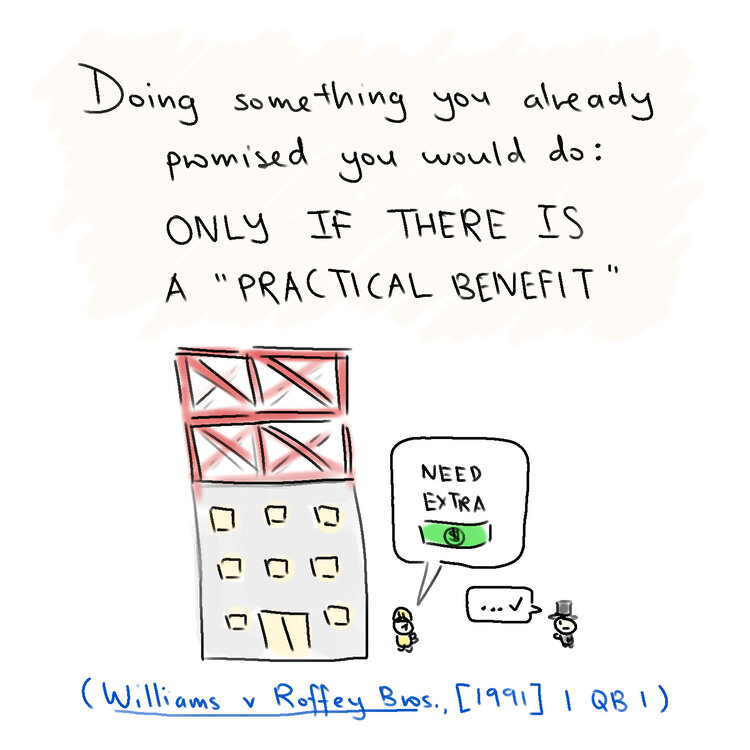 Doing something you already
promised you would do:
ONLY IF THERE IS
A "PRACTICAL BENEFIT"
NEED
EXTRA
$
...✓
(Williams v Roffey Bros., [1991] 1 QB 1)